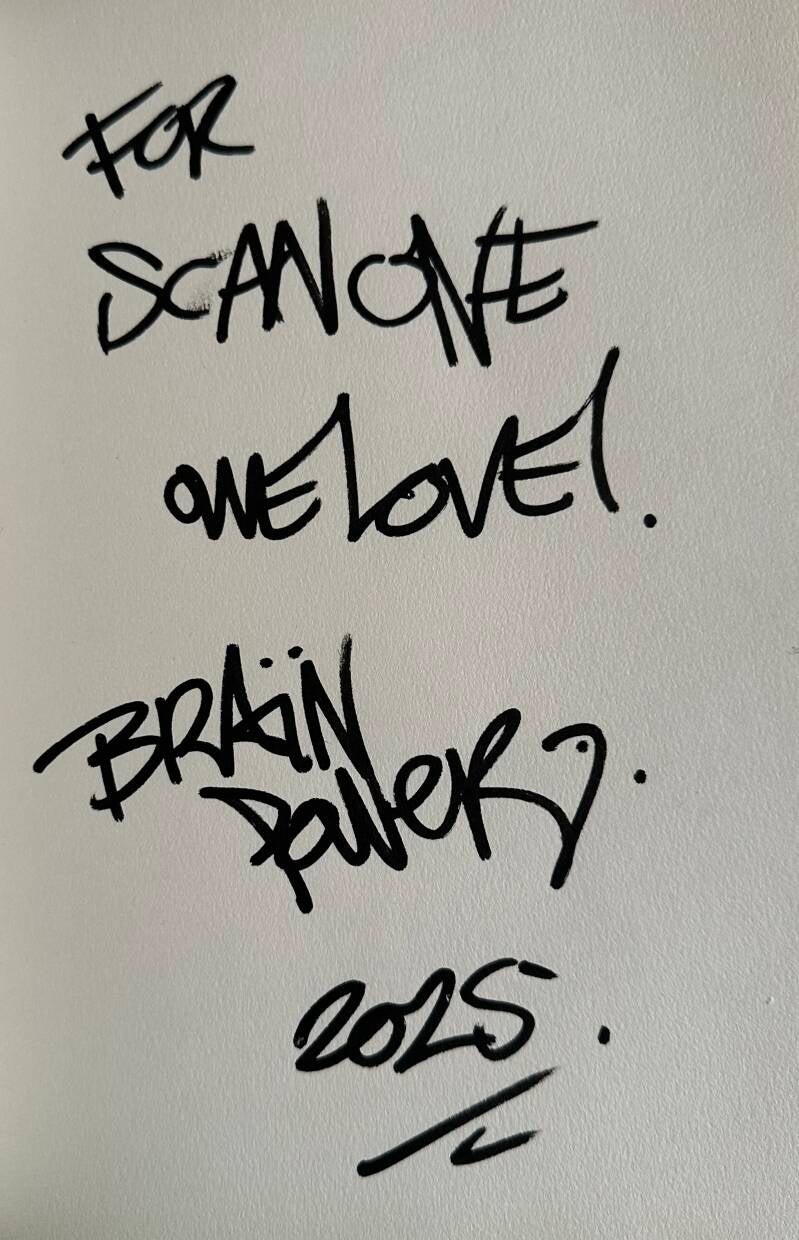 FOR
SCAN ONE
ONE LOVE!
BRAïN
POWER.
2025.